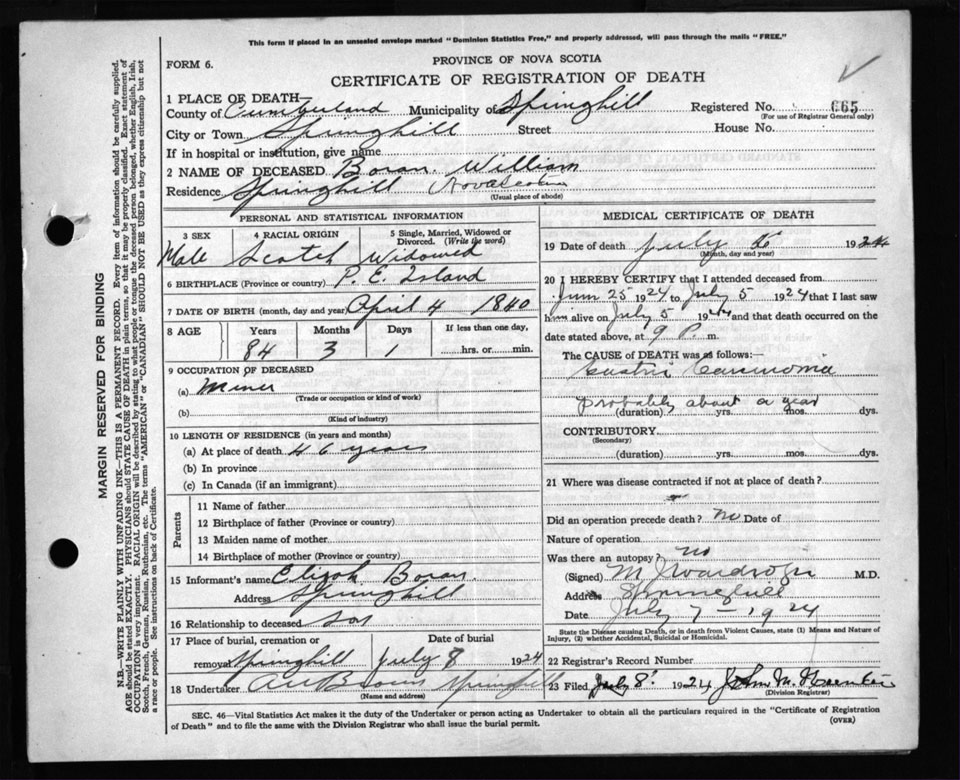 This form if placed in an unsealed envelope marked "Dominion Statistics Free," and properly addressed, will pass through the mails "FREE."
FORM 6.
PROVINCE OF NOVA SCOTIA
CERTIFICATE OF REGISTRATION OF DEATH
1 PLACE OF DEATH—
County of Cumberland Municipality of Springhill Registered No. 665
(For use of Registrar General only)
City or Town Springhill Street House No.
If in hospital or institution, give name
2 NAME OF DECEASED Boran William
Residence Springhill Nova Scotia
(Usual place of abode)
PERSONAL AND STATISTICAL INFORMATION
3 SEX 4 RACIAL ORIGIN 5 Single, Married, Widowed or Divorced. (Write the word)
Male Scotch Widowed
6 BIRTHPLACE (Province or country) P. E. Island
7 DATE OF BIRTH (month, day and year) April 4 1840
8 AGE Years Months Days If less than one day,
84 3 1 hrs. or min.
9 OCCUPATION OF DECEASED
(a) Miner
(Trade or occupation or kind of work)
(b)
(Kind of industry)
10 LENGTH OF RESIDENCE (in years and months)
(a) At place of death 46 years
(b) In province
(c) In Canada (if an immigrant)
Parents
11 Name of father
12 Birthplace of father (Province or country)
13 Maiden name of mother
14 Birthplace of mother (Province or country)
15 Informant's name Elijah Boran
Address Springhill
16 Relationship to deceased Son
17 Place of burial, cremation or Date of burial
removal Springhill July 8 1924
18 Undertaker Springhill
(Name and address)
MEDICAL CERTIFICATE OF DEATH
19 Date of death July 1924
(Month, day and year)
20 I HEREBY CERTIFY that I attended deceased from
June 25 1924 to July 5 1924 that I last saw
him alive on July 5 1924 and that death occurred on the
date stated above, at 9 P. m.
The CAUSE of DEATH was as follows:—
Gastric Carcinoma
probably about a year
(duration) yrs. mos. dys.
CONTRIBUTORY
(Secondary)
(duration) yrs. mos. dys.
21 Where was disease contracted if not at place of death?
Did an operation precede death? no Date of
Nature of operation
Was there an autopsy? no
(Signed) M.D.
Address Springhill
Date July 7 – 1924
State the Disease causing Death, or in death from Violent Causes, state (1) Means and Nature of
Injury, (2) whether Accidental, Suicidal or Homicidal.
22 Registrar's Record Number
23 Filed July 8 1924 John M.
(Division Registrar)
SEC. 46—Vital Statistics Act makes it the duty of the Undertaker or person acting as Undertaker to obtain all the particulars required in the "Certificate of Registration
of Death" and to file the same with the Division Registrar who shall issue the burial permit. (OVER)
MARGIN RESERVED FOR BINDING
N.B.—WRITE PLAINLY WITH UNFADING INK—THIS IS A PERMANENT RECORD. Every item of information should be carefully supplied.
AGE should be stated EXACTLY. PHYSICIANS should STATE CAUSE OF DEATH in plain terms, so that it may be properly classified. Exact statement of
OCCUPATION is very important. RACIAL ORIGIN will be described by stating to what people or tongue the deceased person belonged, whether English, Irish,
Scotch, French, German, Russian, Ruthenian, etc. The terms "AMERICAN" or "CANADIAN" SHOULD NOT BE USED as they express citizenship but not
a race or people. See instructions on back of Certificate.